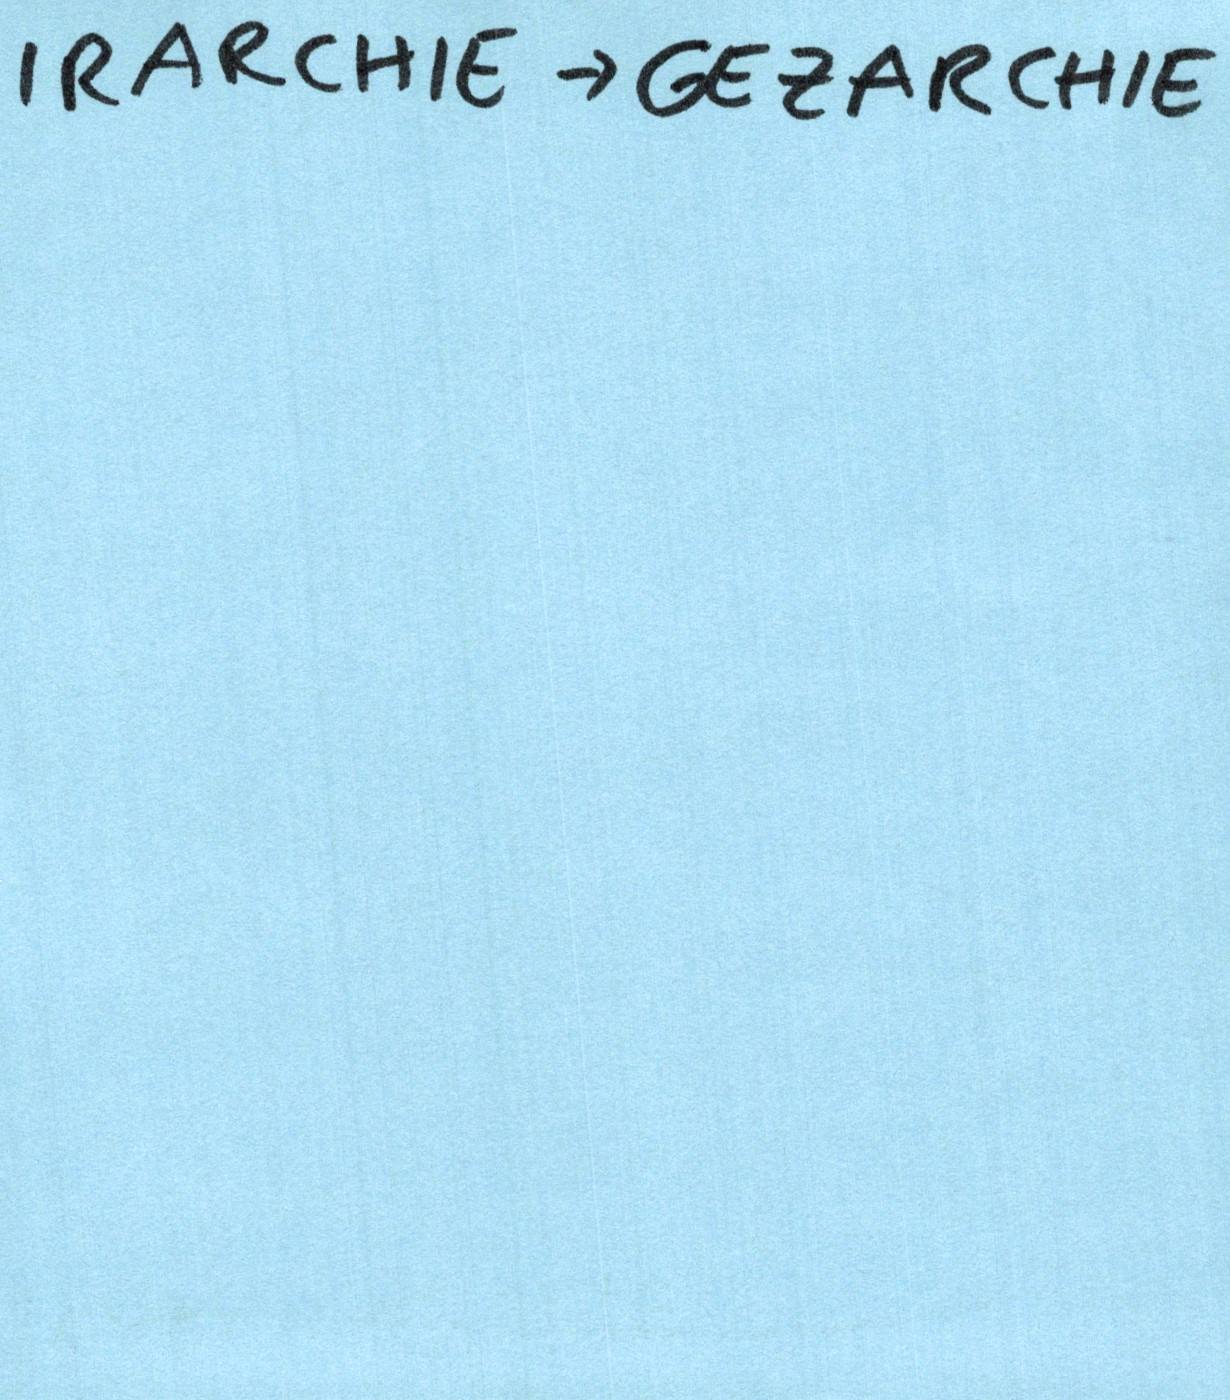 IRARCHIE → GEZARCHIE